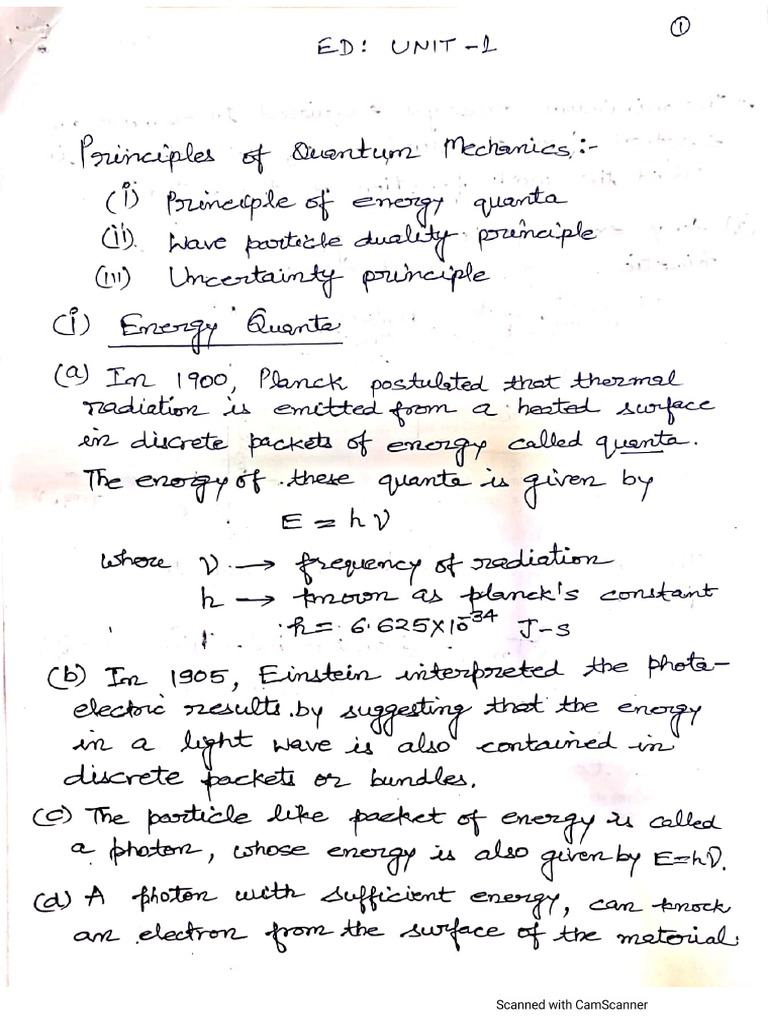 ①
ED: UNIT-1
Principles of Quantum Mechanics:-
(i) Principle of energy quanta
(ii). Wave particle duality principle
(iii) Uncertainty principle
(i) Energy Quanta
(a) In 1900, Planck postulated that thermal
radiation is emitted from a heated surface
in discrete packets of energy called quanta.
The energy of these quanta is given by
E = hν
where ν → frequency of radiation
h → known as planck's constant
h = 6.625×10⁻³⁴ J-S
(b) In 1905, Einstein interpreted the photo-
electric results by suggesting that the energy
in a light wave is also contained in
discrete packets or bundles.
(c) The particle like packet of energy is called
a photon, whose energy is also given by E=hν.
(d) A photon with sufficient energy, can knock
an electron from the surface of the material.
Scanned with CamScanner